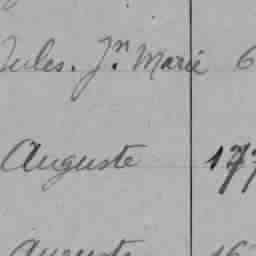 Jules. Jn Marie 6
Auguste 177
Auguste 16